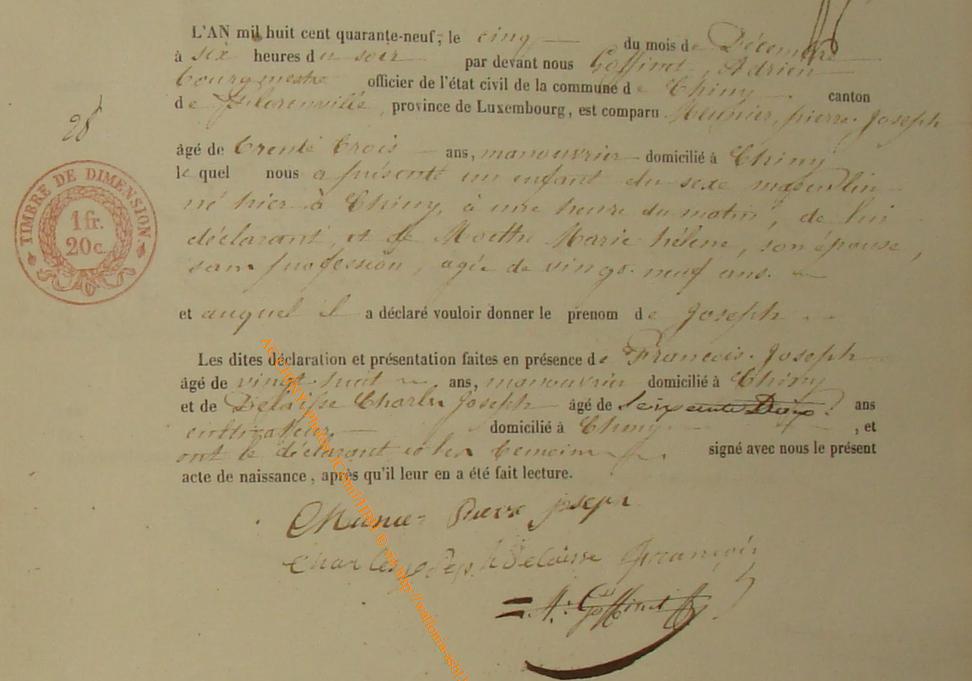 L'AN mil huit cent quarante-neuf, le cinq du mois de Décembre
à six heures du soir par devant nous Goffinet, Adrien
bourgmestre officier de l'état civil de la commune de Chiny canton
de Florenville, province de Luxembourg, est comparu Meunier, pierre. Joseph
28
âgé de trente trois ans, manouvrier domicilié à Chiny
lequel nous a présenté un enfant du sexe masculin
né hier à Chiny, à une heure du matin, de lui
déclarant, et de Marie hélène, son épouse,
sans profession, agée de vingt-neuf ans.
TIMBRE DE DIMENSION
1 fr.
20 c.
et auquel il a déclaré vouloir donner le prenom de Joseph
Les dites déclaration et présentation faites en présence de François. Joseph
âgé de vingt-huit ans, manouvrier domicilié à Chiny
et de Delaisse Charles Joseph âgé de ans
cultivateur domicilié à Chiny , et
ont le déclarant et les temoins signé avec nous le présent
acte de naissance, après qu'il leur en a été fait lecture.
Meunier Pierre joseph
Charles joseph Delaisse françois
A. Goffinet